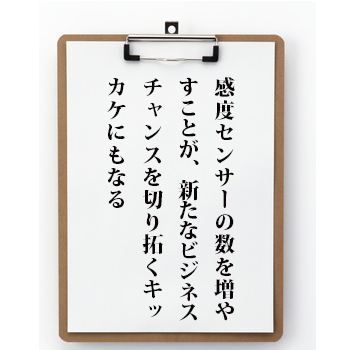 感度センサーの数を増や
すことが、新たなビジネス
チャンスを切り拓くキッ
カケにもなる